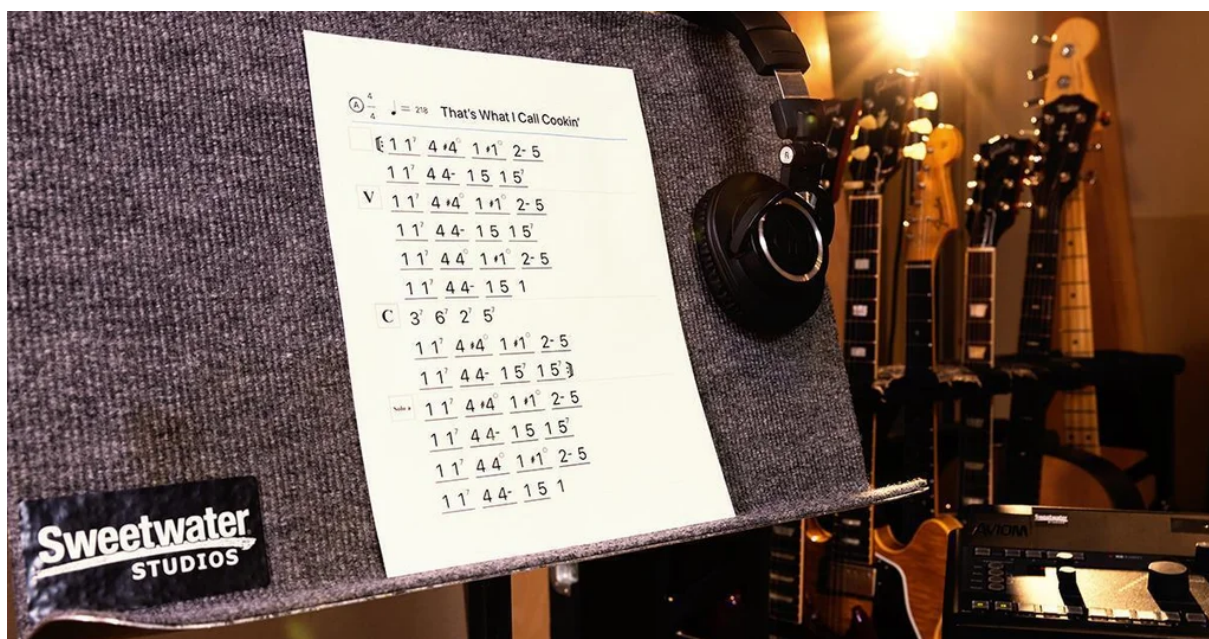 A 4/4 ♩= 218 That's What I Call Cookin'
𝄆 1 1⁷ 4 #4° 1 #1° 2- 5
1 1⁷ 4 4- 1 5 1 5⁷
V 1 1⁷ 4 #4° 1 #1° 2- 5
1 1⁷ 4 4- 1 5 1 5⁷
1 1⁷ 4 4° 1 #1° 2- 5
1 1⁷ 4 4- 1 5 1
C 3⁷ 6⁷ 2⁷ 5⁷
1 1⁷ 4 #4° 1 #1° 2- 5
1 1⁷ 4 4- 1 5⁷ 1 5⁷ 𝄇
Solo 1 1⁷ 4 #4° 1 #1° 2- 5
1 1⁷ 4 4- 1 5 1 5⁷
1 1⁷ 4 4° 1 #1° 2- 5
1 1⁷ 4 4- 1 5 1
Sweetwater
STUDIOS
R
AVIOM
Sweetwater